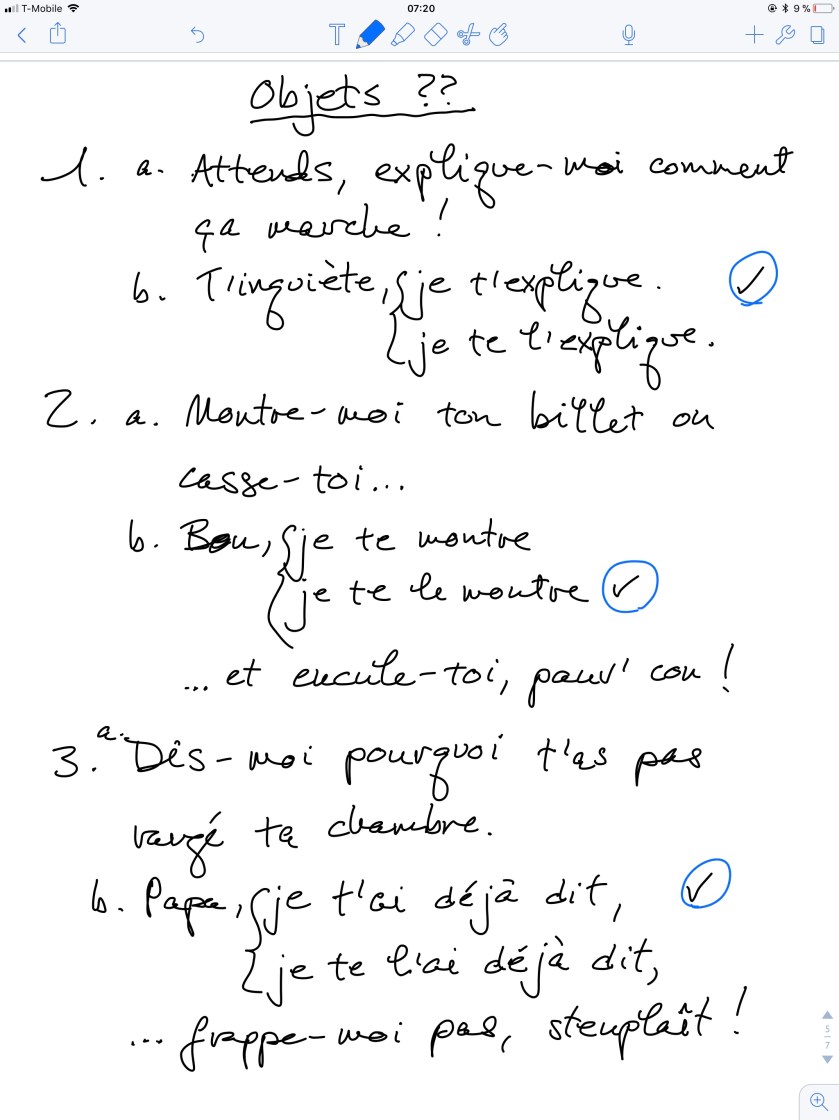 T-Mobile 07:20 9 %
T
Objets ??
1. a. Attends, explique-moi comment
ça marche !
b. T'inquiète, je t'explique. ✓
je te l'explique.
2. a. Montre-moi ton billet ou
casse-toi...
b. Bon, je te montre
je te le montre ✓
... et encule-toi, pauv' con !
3. a. Dis-moi pourquoi t'as pas
rangé ta chambre.
b. Papa, je t'ai déjà dit, ✓
je te l'ai déjà dit,
... frappe-moi pas, steuplaît !
5
7